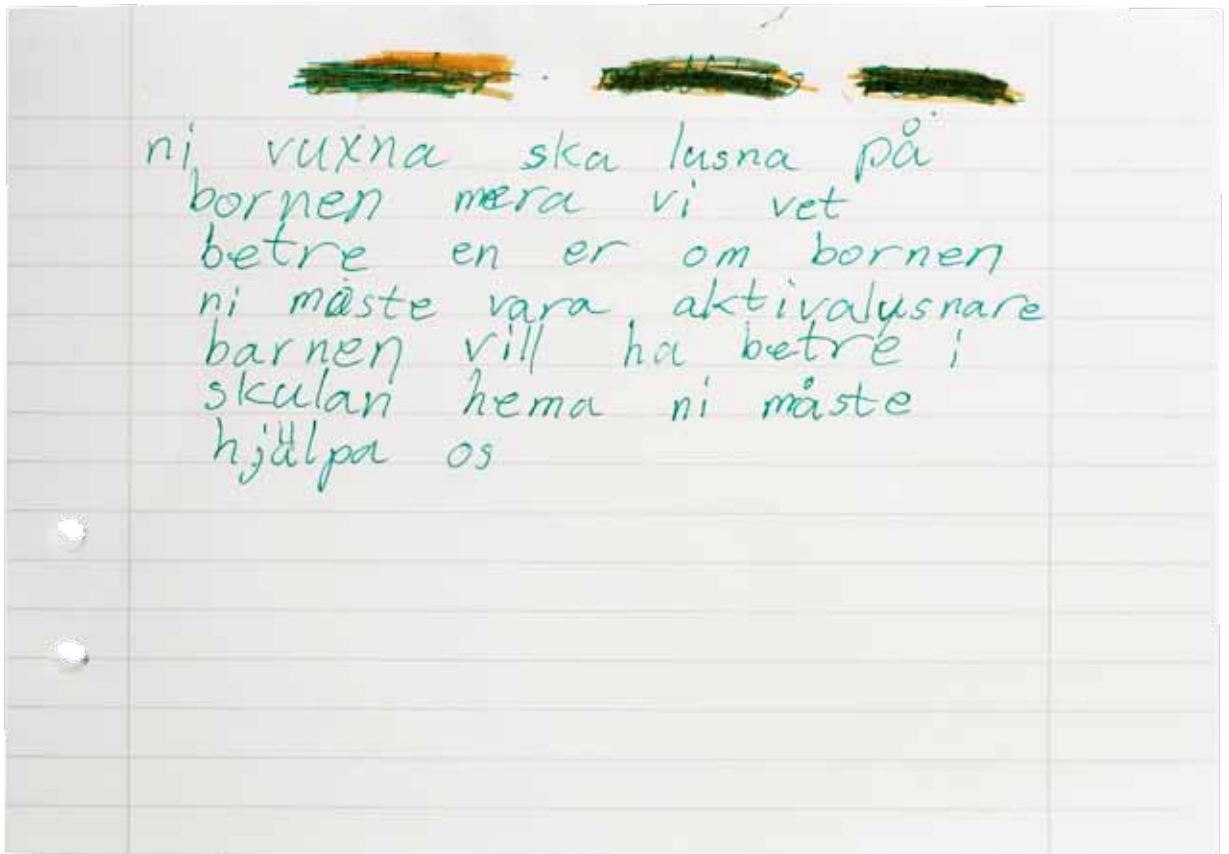 ni vuxna ska lusna på
bornen mera vi vet
betre en er om bornen
ni måste vara aktivalusnare
barnen vill ha betre i
skulan hema ni måste
hjälpa os